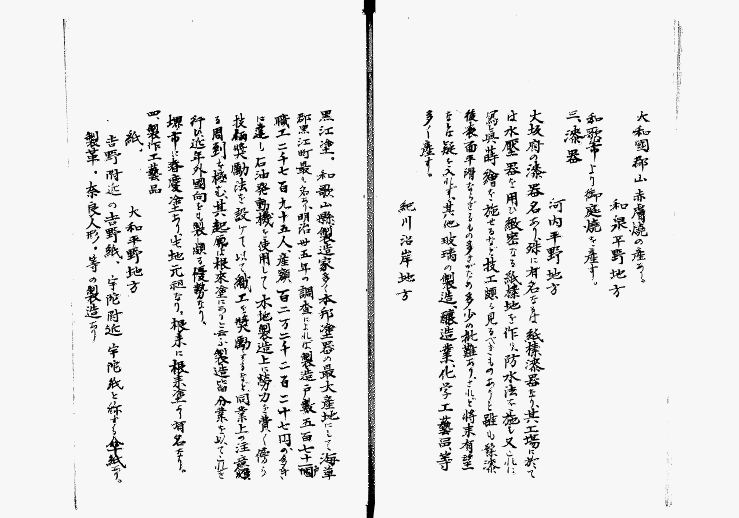 大和國郡山赤膚燒の産あり。
和泉平野地方
和歌山市より御庭燒を産す。
三、漆器
河内平野地方
大坂府の漆器名あり殊に有名なるは紙榛漆器なり其工場に於て
は水壓器を用ひ緻密なる紙榛地を作り防水法を施し又これに
寫眞蒔繪を施せるなど技工頗る見るべきものありと雖も髹漆
後表面平滑ならざるもの多きがため多少の批難あり、されど將来有望
なるは疑を入れず、其他玻璃の製造、釀造業化学工藝品等
多く産す。
紀川沿岸地方
黒江塗、和歌山縣製造家多く本邦塗器の最大産地にして海草
郡黒江町最も名あり、明治廿五年の調査によれば製造戸數五百七十一個
職工二千七百九十五人、産額百二万二千二百二十七円の多き
に達し石油発動機を使用して木地製造上に勞力を費く傍ら
技倆奨勵法を設けて以て職工を奬勵するなど同業上の注意頗
る周到を極む、其起原は根來塗にありと云ふ製造皆分業を以てこれを
行ひ近年外國向をも製し頗る優勢なり。
堺市に春慶塗あり此地元祖なり。根来に根来塗ありて有名なり。
四、製作工藝品
大和平野地方
紙、
吉野附近の吉野紙、宇陀附近宇陀紙と称する傘紙あり。
製革・奈良人形・等の製造あり